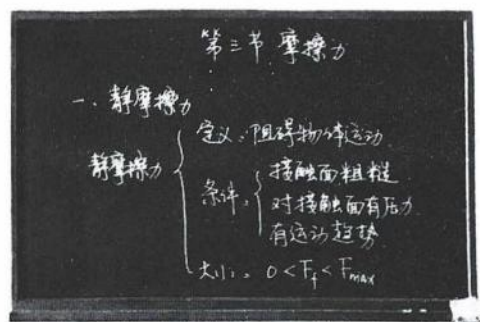 第三节 摩擦力
一、静摩擦力
静摩擦力
定义：阻碍物体运动
条件：
接触面粗糙
对接触面有压力
有运动趋势
大小：0<Ff<Fmax